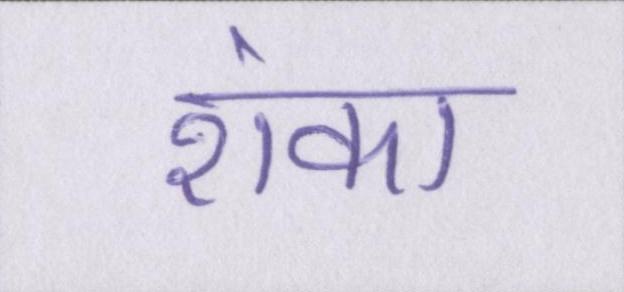 शंका